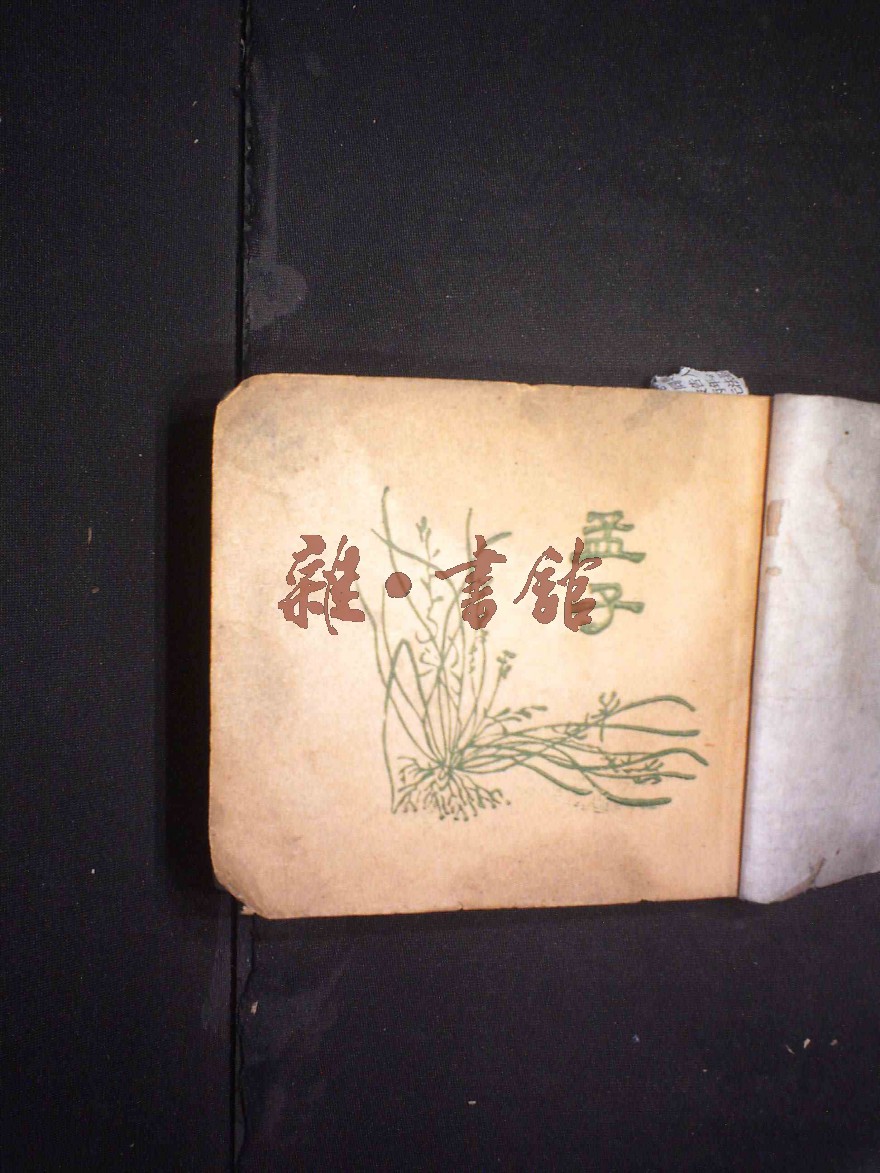 孟子
雜·書館